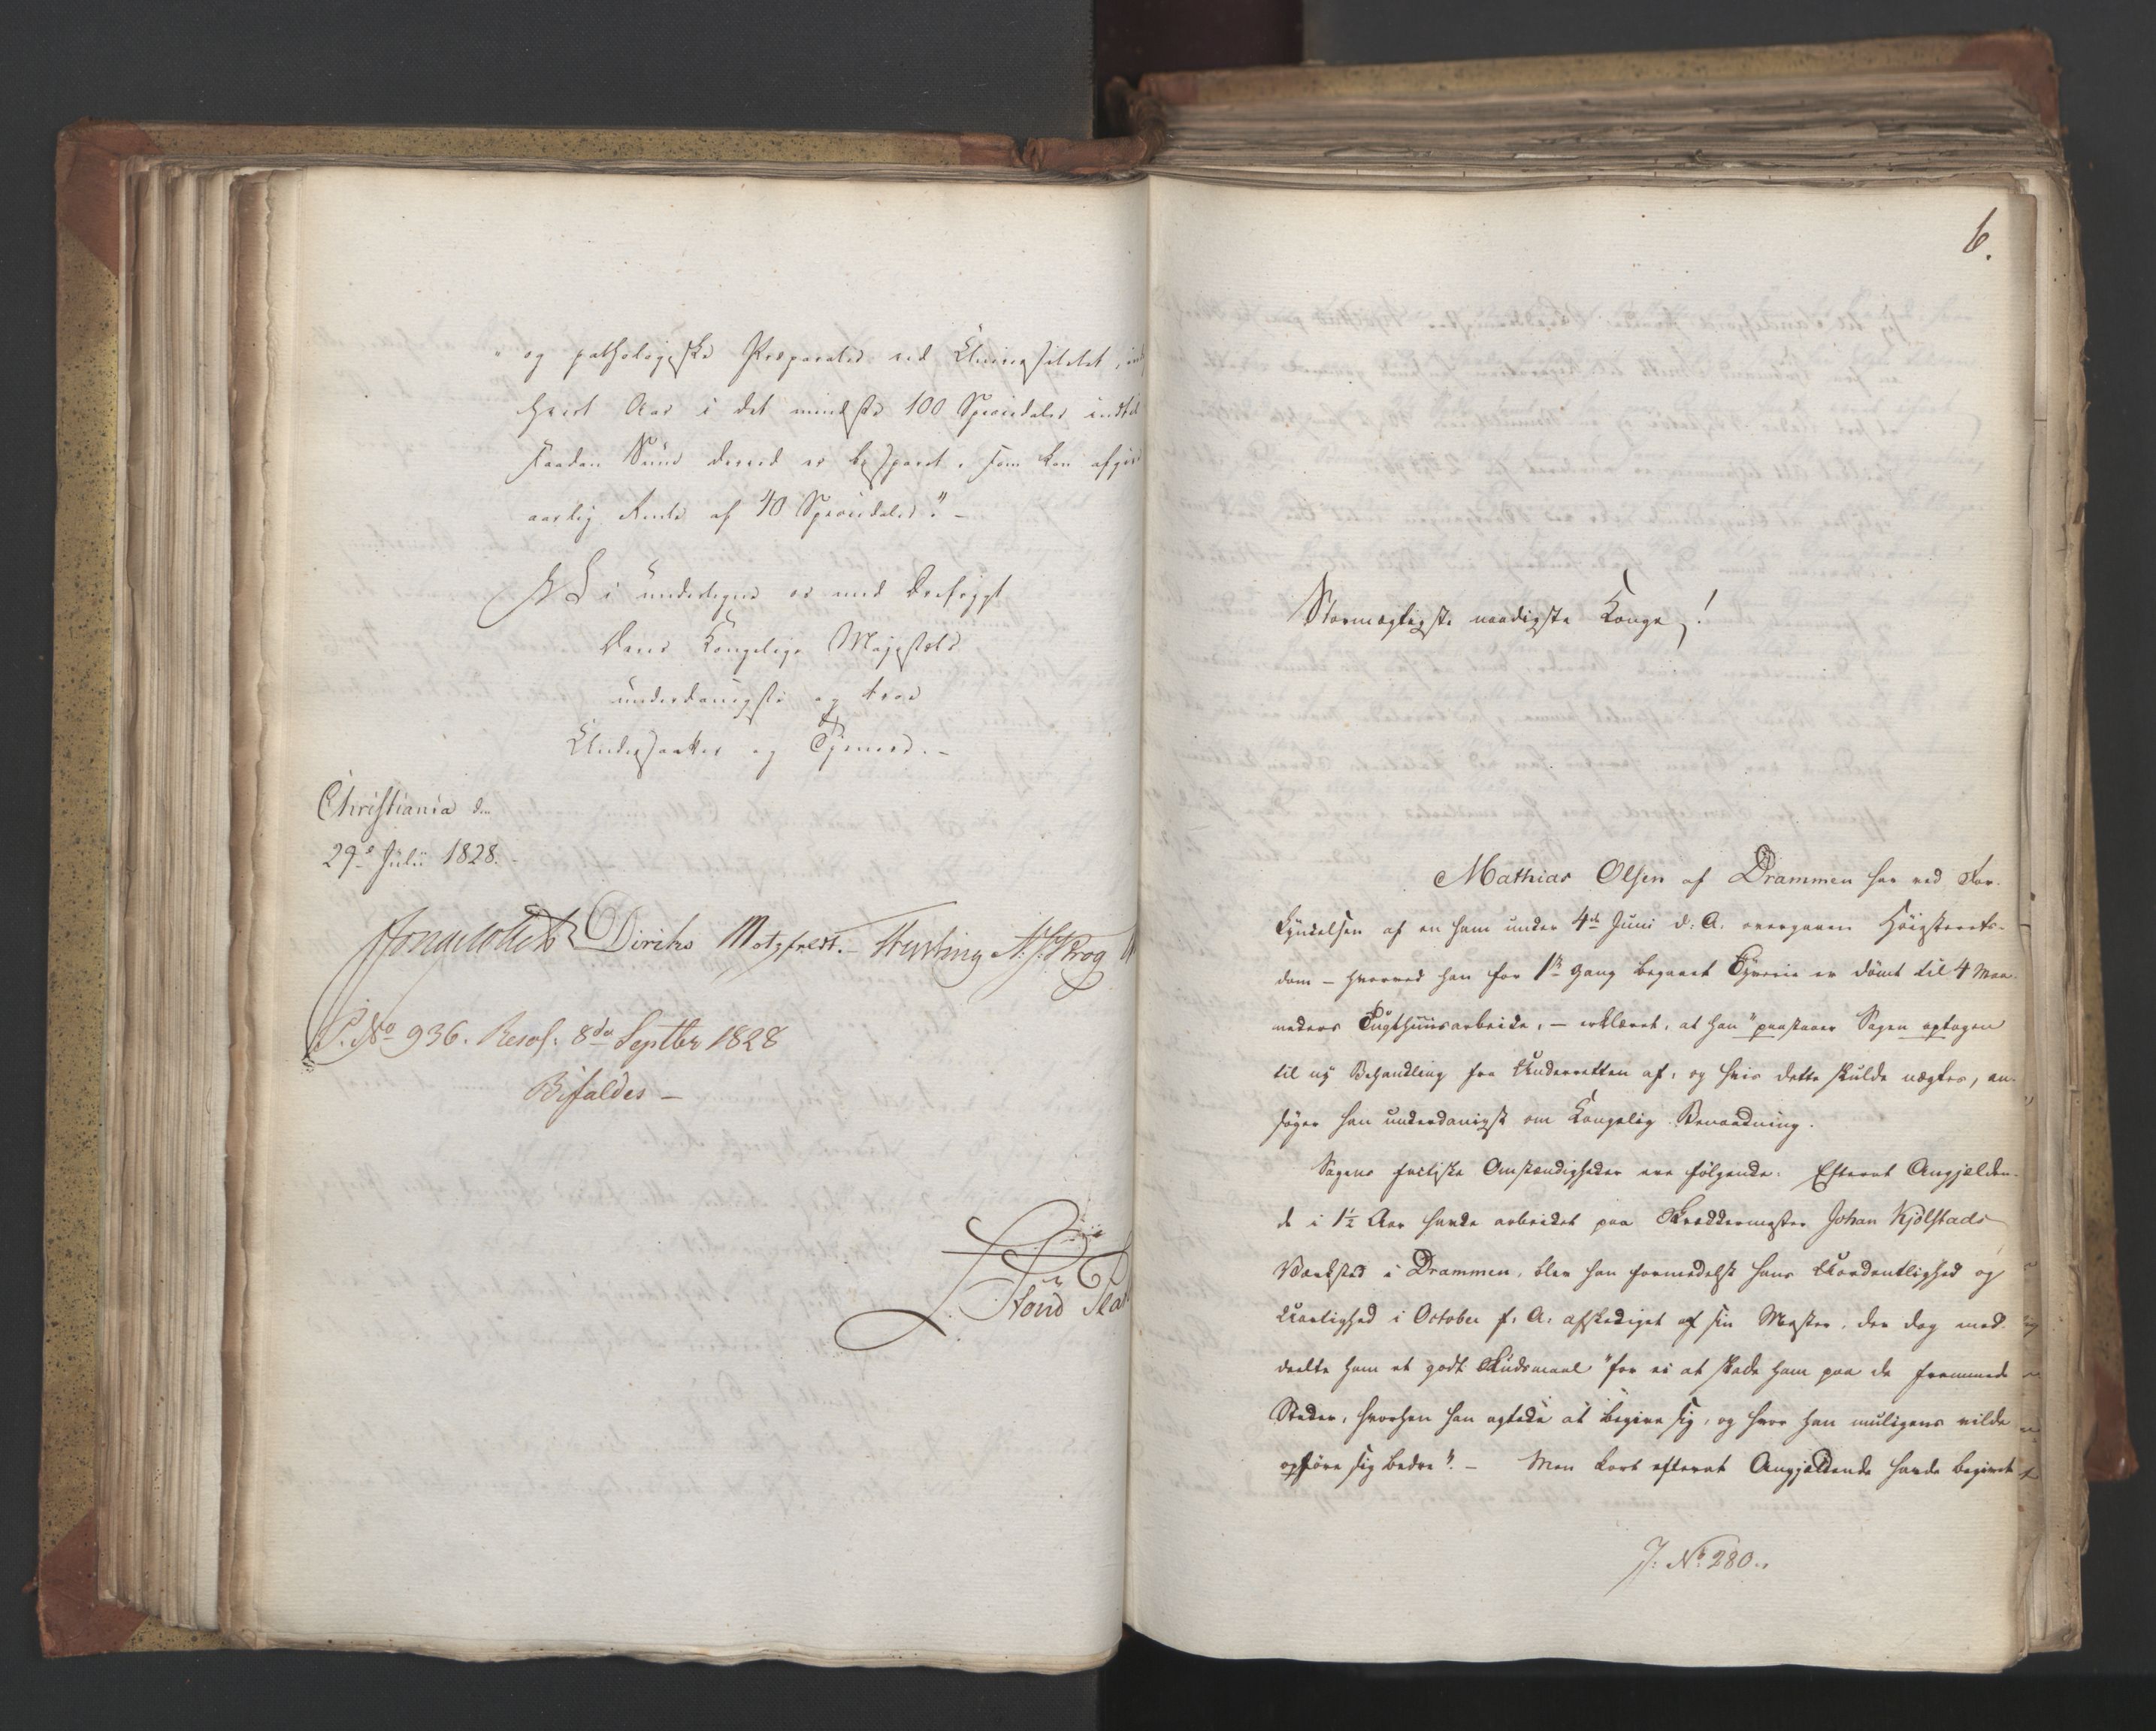 og pathologiske Præparater ved Universitetet, ind
hvert Aar i det mindste 100 Speciedaler indtil
saadan Sum derved er bespart, som kan afgive
aarlig Rente af 40 Speciedaler." -
Vi undertegne os med Ærefrygt
Deres Kongelige Majestæts
underdanigste og troe
Undersaatter og Tjenere. -
Christiania den
29de Julii 1828. -
Diriks Motzfeldt. - N. J. Krog
P. No 936. Resol. 8de Septbr 1828
Bifaldes -
6.
Stormægtigste naadigste Konge!
Mathias Olsen af Drammen har ved For-
kyndelsen af en ham under 4de Juni d: A. overgaaen Höiesterets-
dom - hvorved han for 1ste Gang begaaet Tyverie er dömt til 4 Maa-
neders Tugthuusarbeide, - erklæret, at han "paastaaer Sagen optagen
til ny Behandling fra Underretten af, og hvis dette skulde nægtes, an-
söger han underdanigst om Kongelig Benaadning.
Sagens factiske Omstændigheder ere fölgende: Efterat Angjælden-
de i 1½ Aar havde arbeidet paa Skræddermester Johan Kjölstads
Værksted i Drammen, blev han formedelst hans Uordentlighed og
i October f: A. afskediget af sin Mester, der dog med-
deelte ham et godt Skudsmaal "for ei at skade ham paa de fremmede
Steder, hvorhen han agtede at begive sig, og hvor han muligens vilde
opföre sig bedre". - Men kort efterat Angjældende havde begivet
J: No 280.